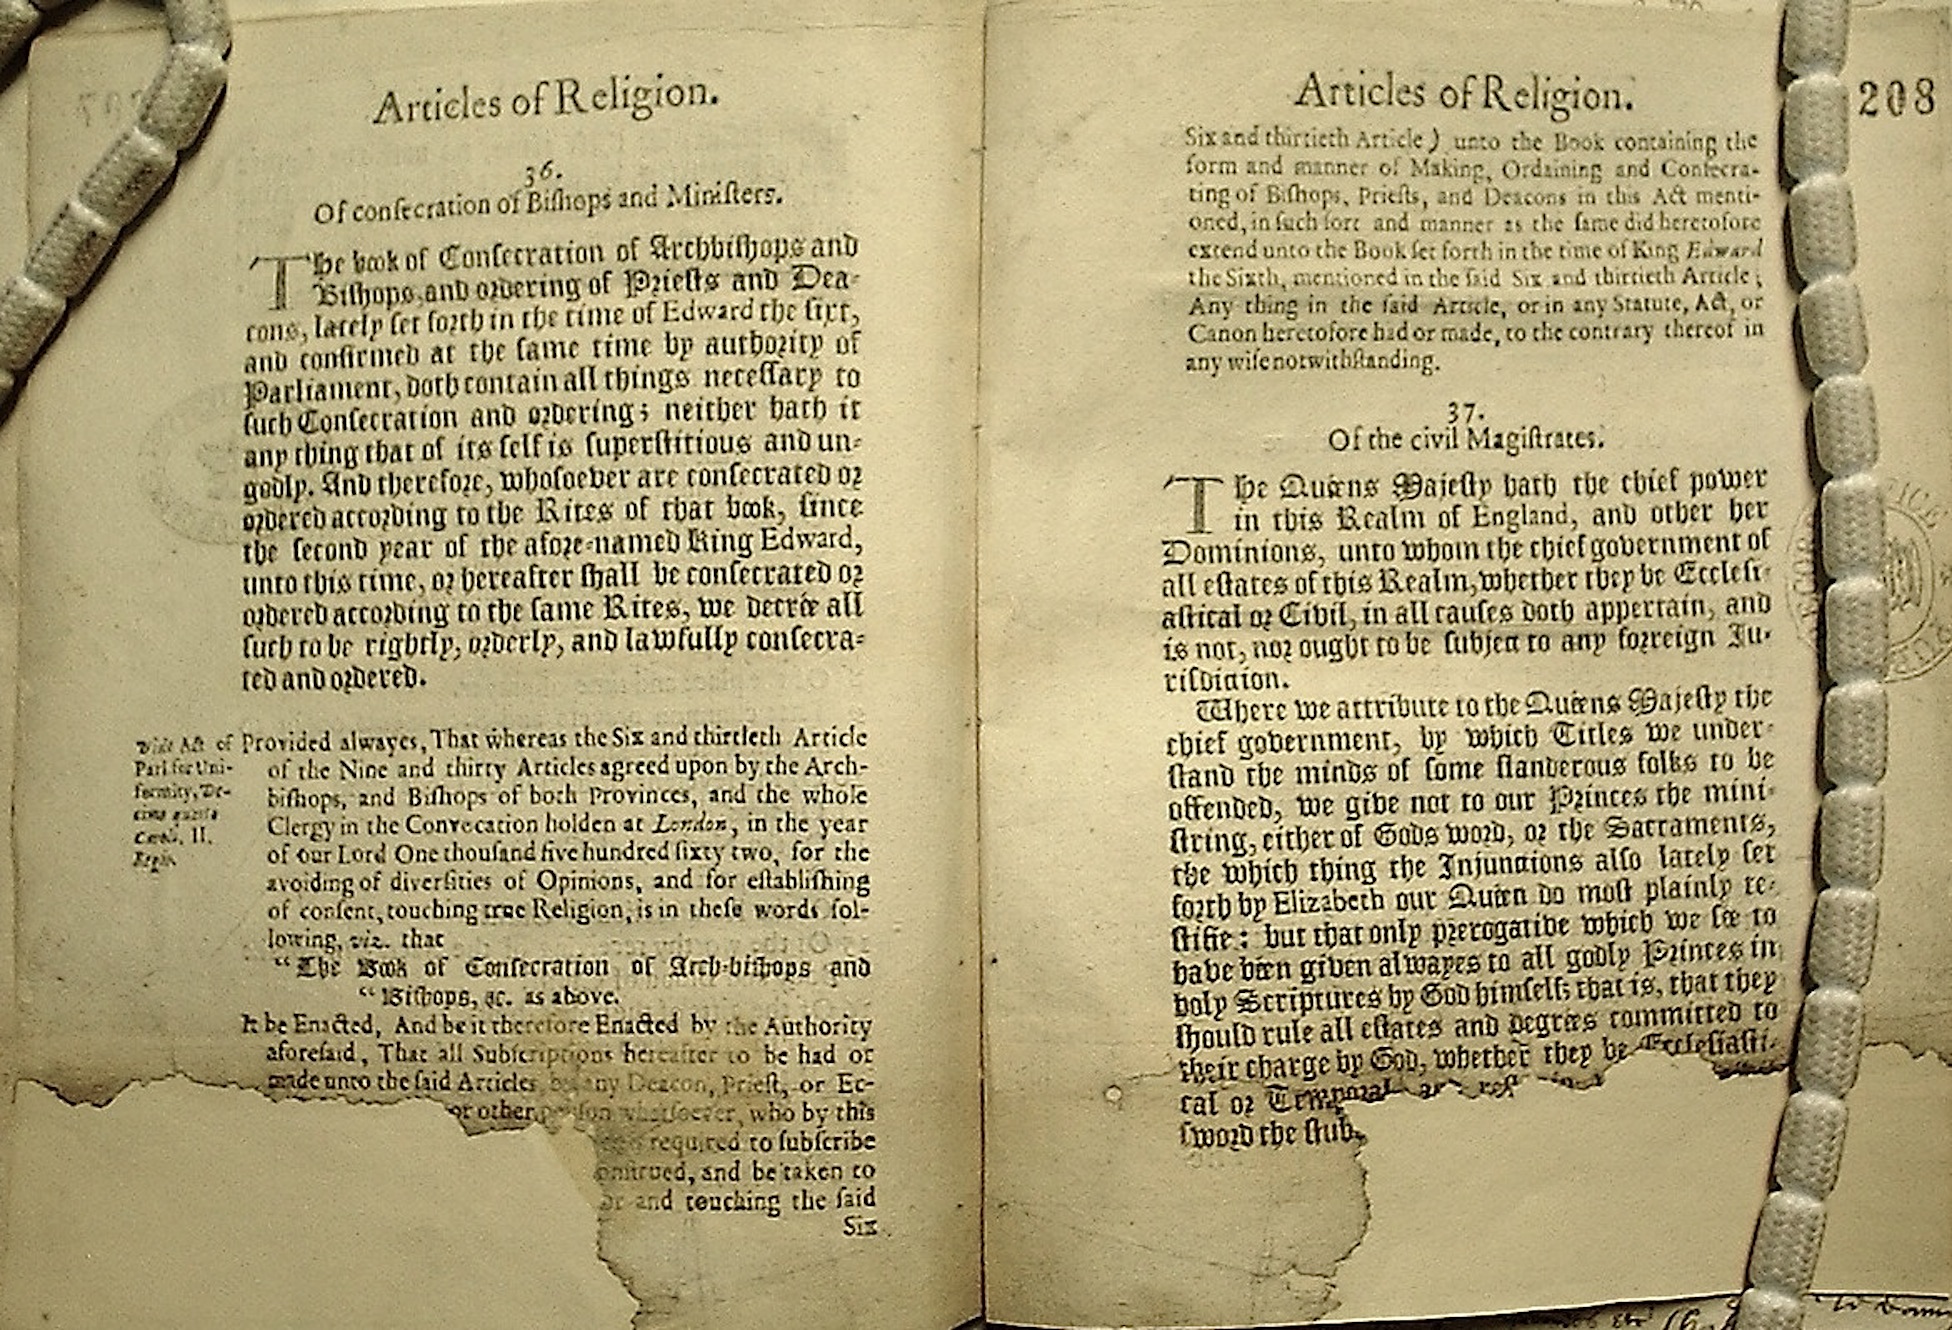 Articles of Religion.
36.
Of conſecration of Biſhops and Miniſters.
The book of Conſecration of Archbiſhops and
Biſhops, and ordering of Prieſts and Dea-
cons, lately ſet forth in the time of Edward the ſixt,
and confirmed at the ſame time by authority of
Parliament, doth contain all things neceſſary to
ſuch Conſecration and ordering; neither hath it
any thing that of its ſelf is ſuperſtitious and un-
godly. And therefore, whoſoever are conſecrated or
ordered according to the Rites of that book, ſince
the ſecond year of the afore-named King Edward,
unto this time, or hereafter ſhall be conſecrated or
ordered according to the ſame Rites, we decree all
ſuch to be rightly, orderly, and lawfully conſecra-
ted and ordered.
Vide Act of
Parl for Uni-
formity, De-
cimo quarto
Caroli, II.
Regis.
Provided alwayes, That whereas the Six and thirtieth Article
of the Nine and thirty Articles agreed upon by the Arch-
biſhops, and Biſhops of both Provinces, and the whole
Clergy in the Convocation holden at London, in the year
of our Lord One thouſand five hundred ſixty two, for the
avoiding of diverſities of Opinions, and for eſtabliſhing
of conſent, touching true Religion, is in theſe words fol-
lowing, viz. that
“The Book of Conſecration of Arch-biſhops and
“Biſhops, &c. as above.
It be Enacted, And be it therefore Enacted by the Authority
aforeſaid, That all Subſcriptions hereafter to be had or
made unto the ſaid Articles by any Deacon, Prieſt, or Ec-
or other perſon whatſoever, who by this
required to ſubſcribe
onſtrued, and be taken to
and touching the ſaid
Six
Articles of Religion.
208
Six and thirtieth Article) unto the Book containing the
form and manner of Making, Ordaining and Conſecra-
ting of Biſhops, Prieſts, and Deacons in this Act menti-
oned, in ſuch ſort and manner as the ſame did heretofore
extend unto the Book ſet forth in the time of King Edward
the Sixth, mentioned in the ſaid Six and thirtieth Article;
Any thing in the ſaid Article, or in any Statute, Act, or
Canon heretofore had or made, to the contrary thereof in
any wiſe notwithſtanding.
37.
Of the civil Magiſtrates.
The Queens Majeſty hath the chief power
in this Realm of England, and other her
Dominions, unto whom the chief government of
all eſtates of this Realm, whether they be Eccleſi-
aſtical or Civil, in all cauſes doth appertain, and
is not, nor ought to be ſubject to any forreign Ju-
riſdiction.
Where we attribute to the Queens Majeſty the
chief government, by which Titles we under-
ſtand the minds of ſome ſlanderous folks to be
offended, we give not to our Princes the mini-
ſtring, either of Gods word, or the Sacraments,
the which thing the Injunctions alſo lately ſet
forth by Elizabeth our Queen do moſt plainly te-
ſtifie: but that only prerogative which we ſee to
have been given alwayes to all godly Princes in
holy Scriptures by God himſelf; that is, that they
ſhould rule all eſtates and degrees committed to
their charge by God, whether they be Eccleſiaſti-
cal or Temporal
ſword the ſtub